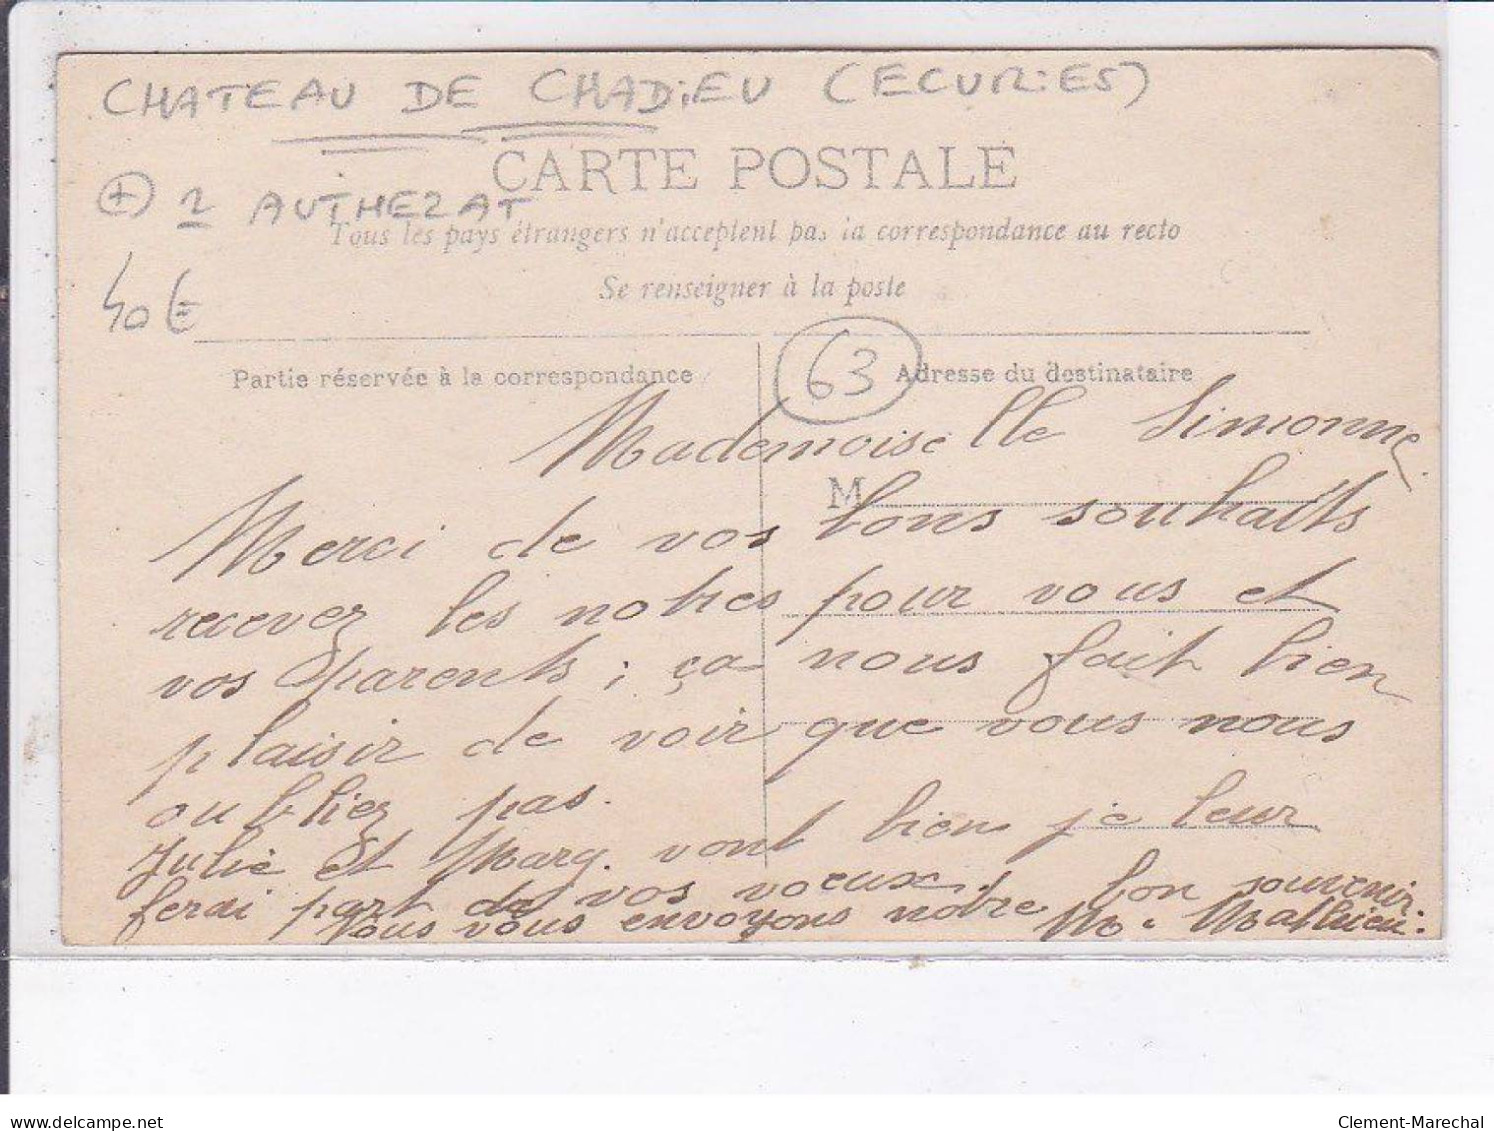 CHATEAU DE CHADIEU (ECURIES)
CARTE POSTALE
+ 1 AUTHEZAT
Tous les pays étrangers n'acceptent pas la correspondance au recto
40 €
Se renseigner à la poste
63
Partie réservée à la correspondance
Adresse du destinataire
Mademoiselle Simonne
M
Merci de vos bons souhaits
recevez les notres pour vous et
vos parents ; ça nous fait bien
plaisir de voir que vous nous
oubliez pas.
Julie et Marg. vont bien je leur
ferai part de vos voeux.
Nous vous envoyons notre bon souvenir
M. Mathieu.
delcampe.net
Clement-Marechal